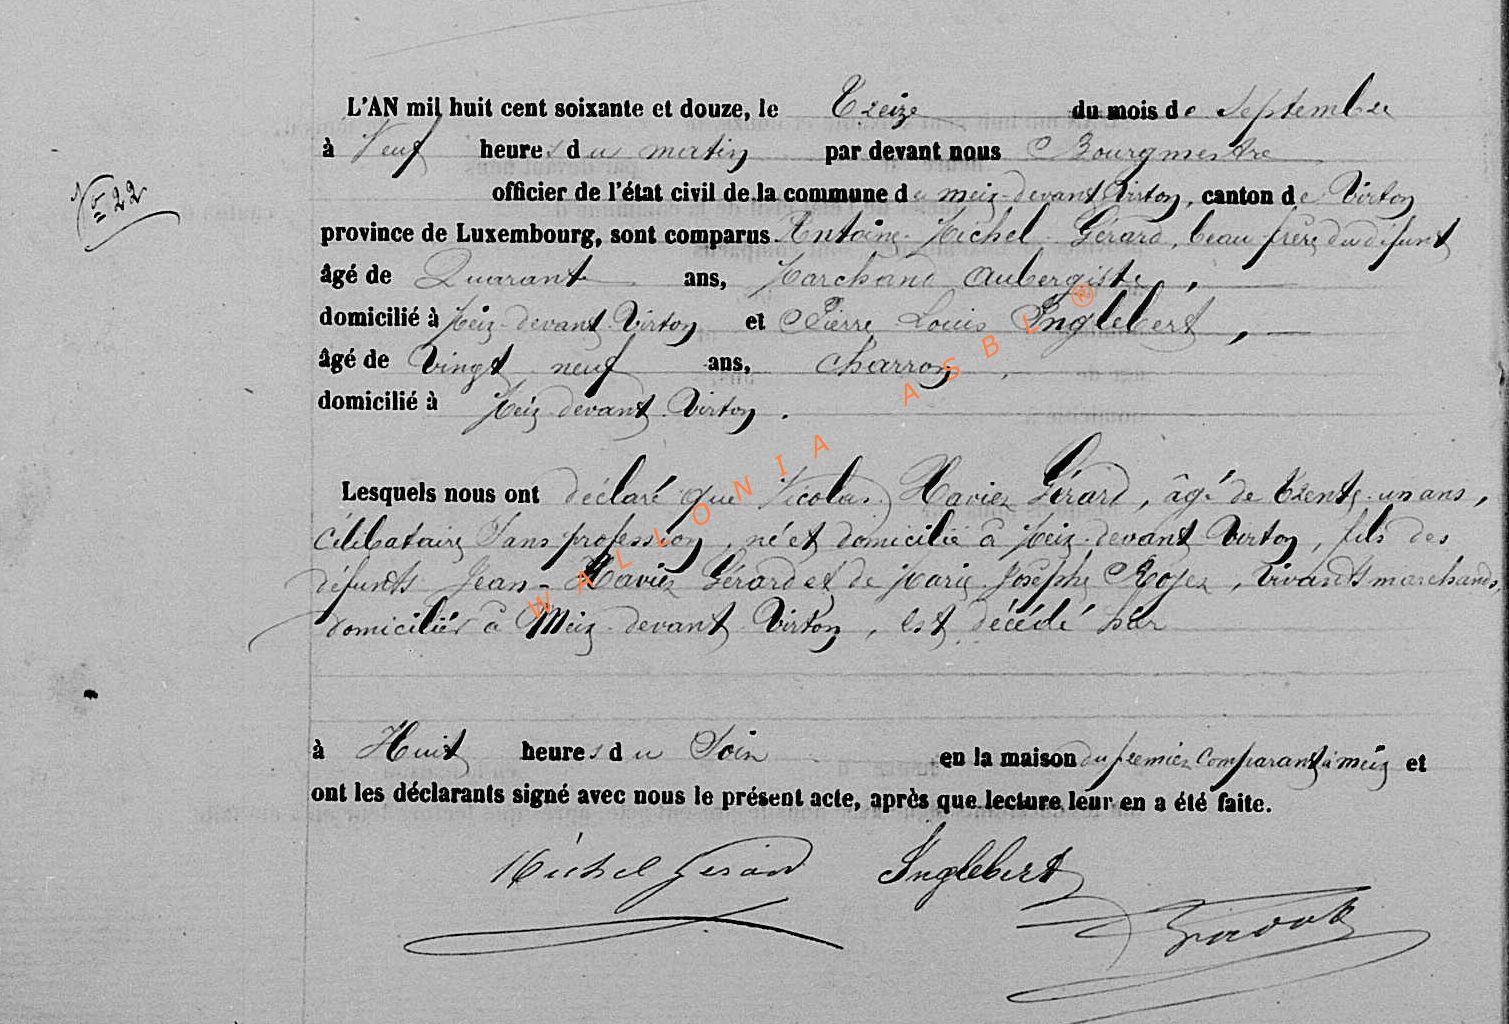 L'AN mil huit cent soixante et douze, le Treize du mois de Septembre
à Neuf heures du matin par devant nous Bourgmestre
officier de l'état civil de la commune de meix-devant Virton, canton de Virton
N° 22
province de Luxembourg, sont comparus Antoine Michel Gérard, beau frère du défunt
âgé de Quarante ans, Marchand aubergiste,
domicilié à Meix-devant Virton et Pierre Louis Inglebert,
âgé de Vingt neuf ans, charron,
domicilié à Meix devant Virton.
Lesquels nous ont déclaré que Nicolas Xavier Gérard, âgé de trente un ans,
célibataire sans profession, né et domicilié à Meix-devant Virton, fils des
défunts Jean-Xavier Gérard et de Marie Josèphe Royer, vivants marchands,
domiciliés à Meix devant Virton, est décédé hier
à Huit heures du Soir en la maison du premier comparant à meix et
ont les déclarants signé avec nous le présent acte, après que lecture leur en a été faite.
Michel Gérard Inglebert
WALLONIA ASBL ®